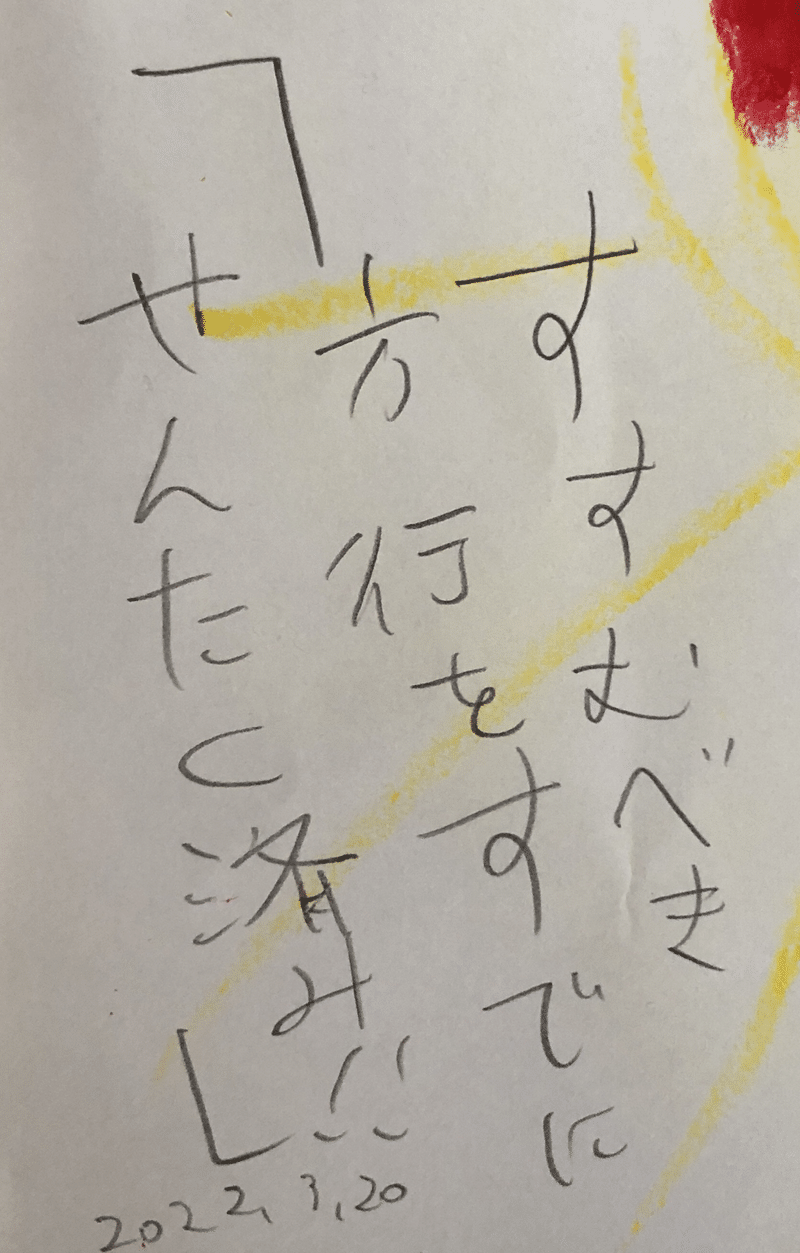 すすむべき
方行をすでに
「せんたく済み!!」
2022,3,20